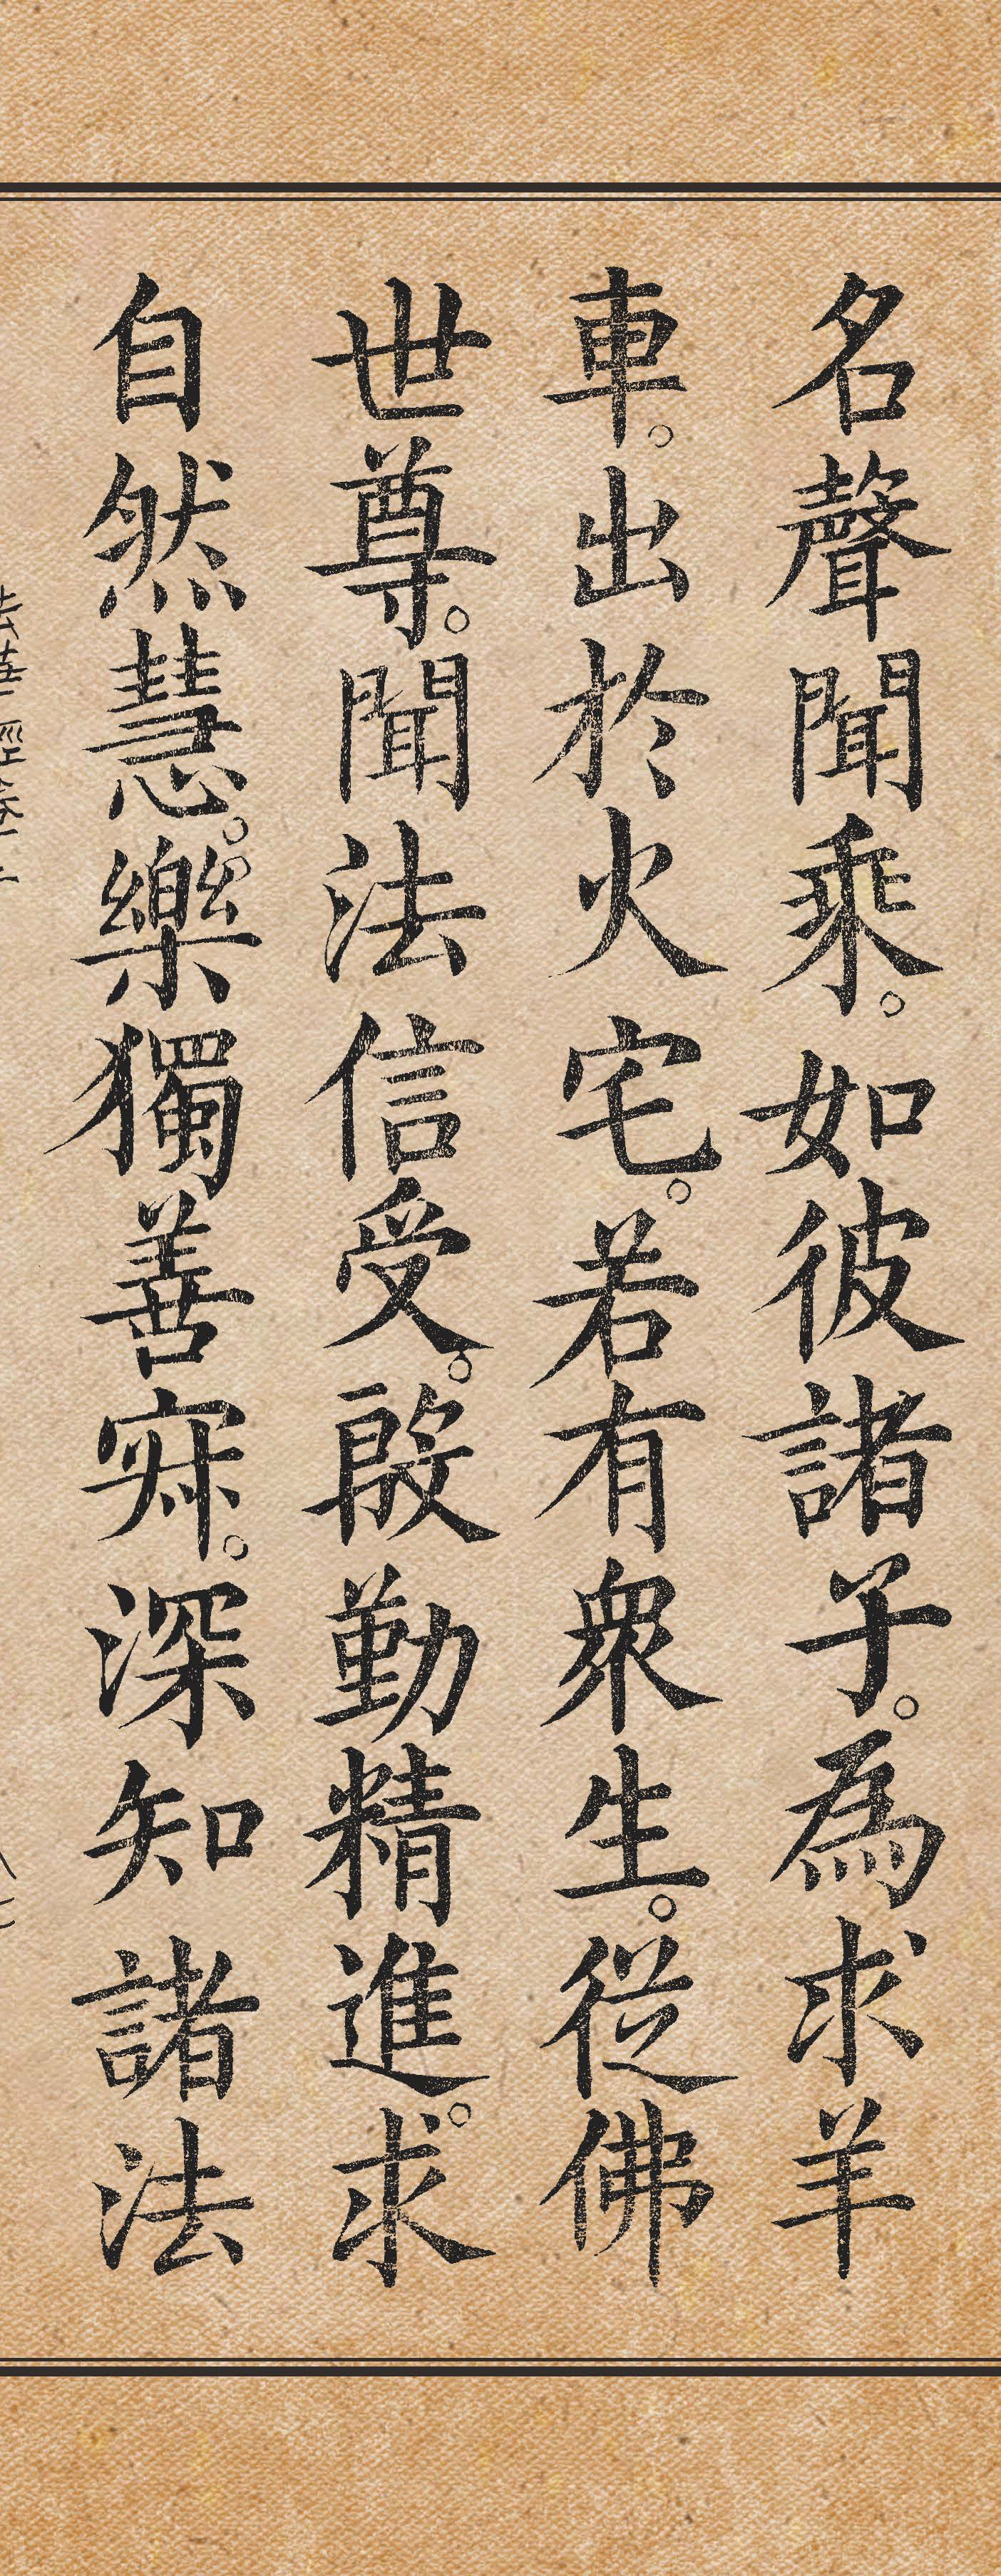 名聲聞乘。如彼諸子。為求羊
車。出於火宅。若有眾生。從佛
世尊。聞法信受。慇勤精進。求
自然慧。樂獨善寂。深知諸法